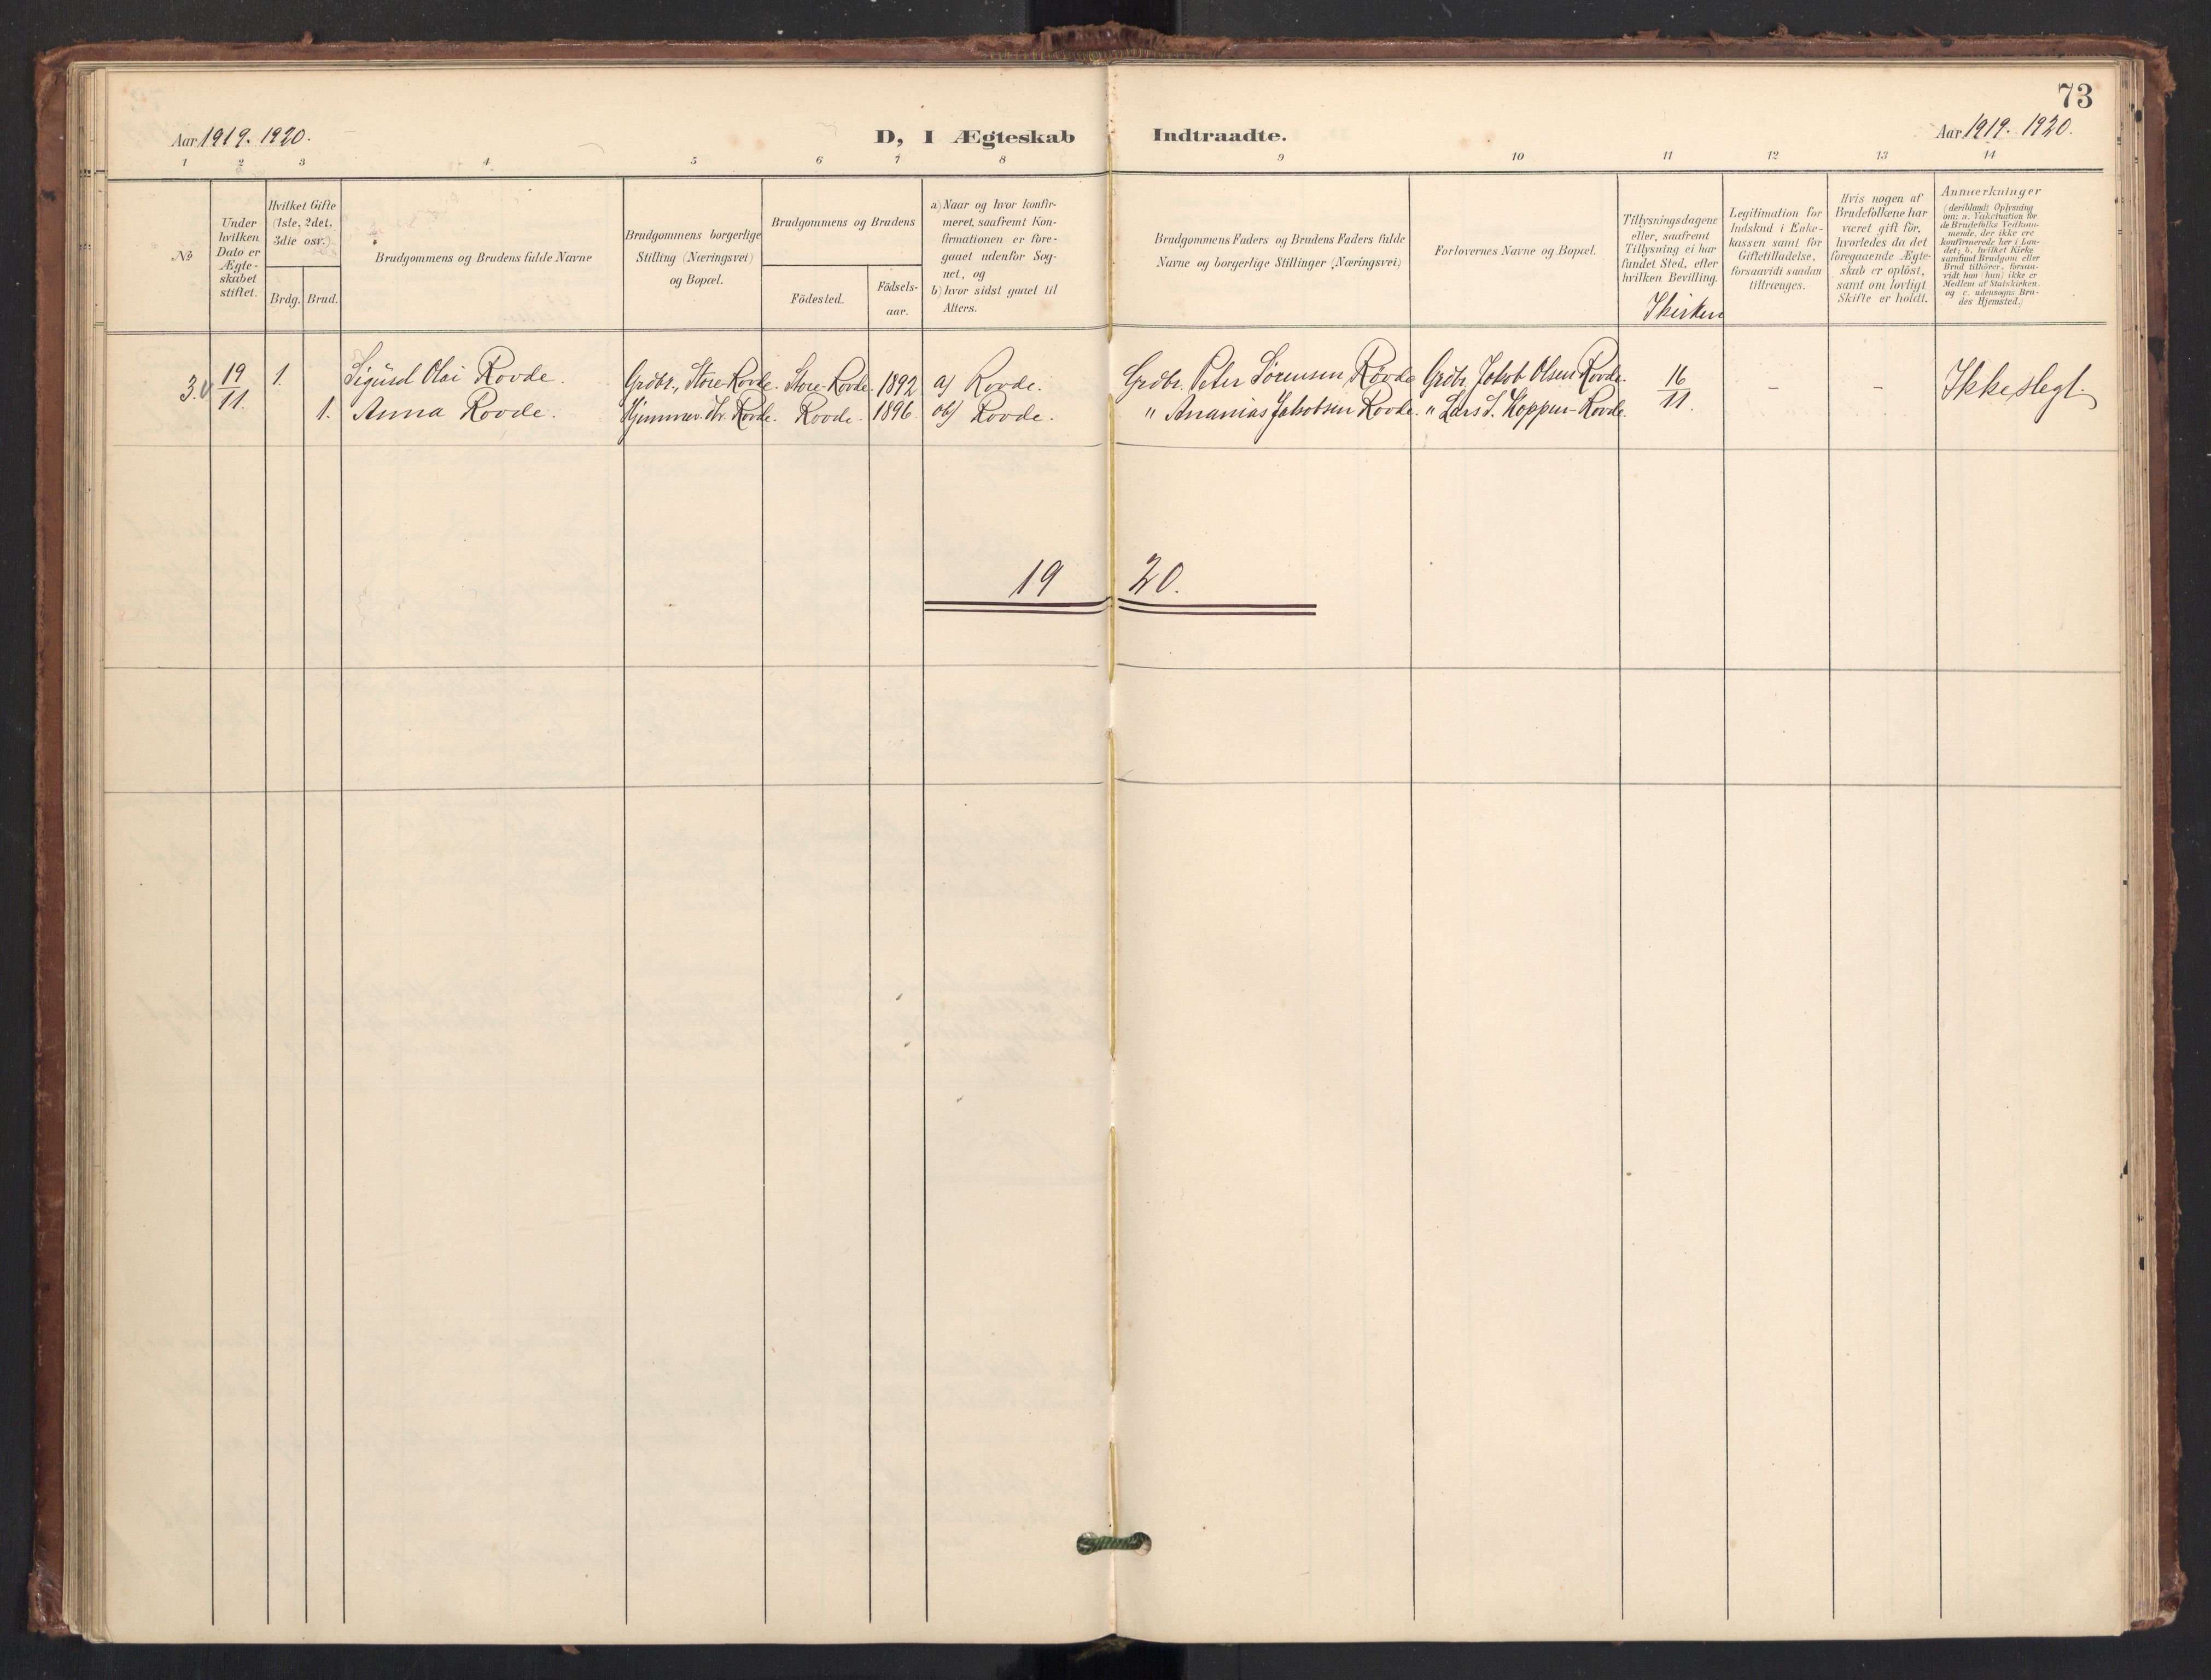 73
Aar 1919. 1920.
D, I Ægteskab Indtraadte.
Aar 1919. 1920.
1 2 3 4 5 6 7 8 9 10 11 12 13 14
No
Under
hvilken
Dato er
Ægte-
skabet
stiftet.
Hvilket Gifte
(1ste, 2det,
3die osv.)
Brdg. Brud.
Brudgommens og Brudens fulde Navne
Brudgommens borgerlige
Stilling (Næringsvei)
og Bopæl.
Brudgommens og Brudens
Födested.
Födsels-
aar.
a) Naar og hvor konfir-
meret, saafremt Kon-
firmationen er fore-
gaaet udenfor Sog-
net, og
b) hvor sidst gaaet til
Alters.
Brudgommens Faders og Brudens Faders fulde
Navne og borgerlige Stillinger (Næringsvei)
Forlovernes Navne og Bopæl.
Tillysningsdagene
eller, saafremt
Tillysning ei har
fundet Sted, efter
hvilken Bevilling.
I kirken
Legitimation for
Indskud i Enke-
kassen samt for
Giftetilladelse,
forsaavidt saadan
tiltrænges.
Hvis nogen af
Brudefolkene har
været gift för,
hvorledes da det
foregaaende Ægte-
skab er oplöst,
samt om lovligt
Skifte er holdt.
Anmærkninger
(deriblandt Oplysning
om: a. Vakcination for
de Brudefolks Vedkom-
mende, der ikke ere
konfirmerede her i Lan-
det; b. hvilket Kirke-
samfund Brudgom eller
Brud tilhörer, forsaa-
vidt han (hun) ikke er
Medlem af Statskirken,
og c. udensogns Bru-
des Hjemsted.)
3. 19/11 1. Sigurd Olai Rovde. Grdbr., Store-Rovde. Store-Rovde. 1892 a) Rovde. Grdbr. Peter Sörensen Rövde Grdbr. Jakob Olsen Rovde. 16/11. – – Ikke slegt.
1. Anna Rovde. Rovde. Rovde. 1896. Rovde. " Ananias Jakobsen Rovde. " Lars J. Koppen-Rovde.
19 20.